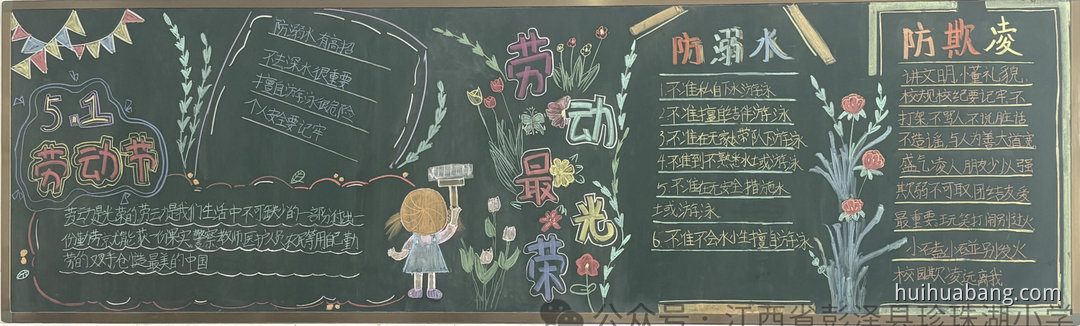 5.1
劳动节
防溺水有高招
不去深水很重要
擅自游泳很危险
个人安全要记牢
劳动是光荣的劳动是我们生活中不可缺少的一部分付出一
份勤劳才能获一份果实警察教师医护人员农民等用自己勤
劳的双手创造最美的中国
劳动最光荣
防溺水
1.不准私自下水游泳
2.不准擅自结伴游泳
3.不准在无家长带队下游泳
4.不准到不熟悉水域游泳
5.不准在无安全措施水
域游泳
6.不准不会水小生擅自游泳
防欺凌
讲文明,懂礼貌,
校规校纪要记牢,不
打架不骂人不说脏话
不造谣,与人为善大道宽
盛气凌人朋友少以强
欺弱不可取团结友爱
最重要,玩笑打闹别过火
小恙小恶并别发火
校园欺凌远离我
huihuabang.com
公众号·江西省彭泽县珍珠湖小学